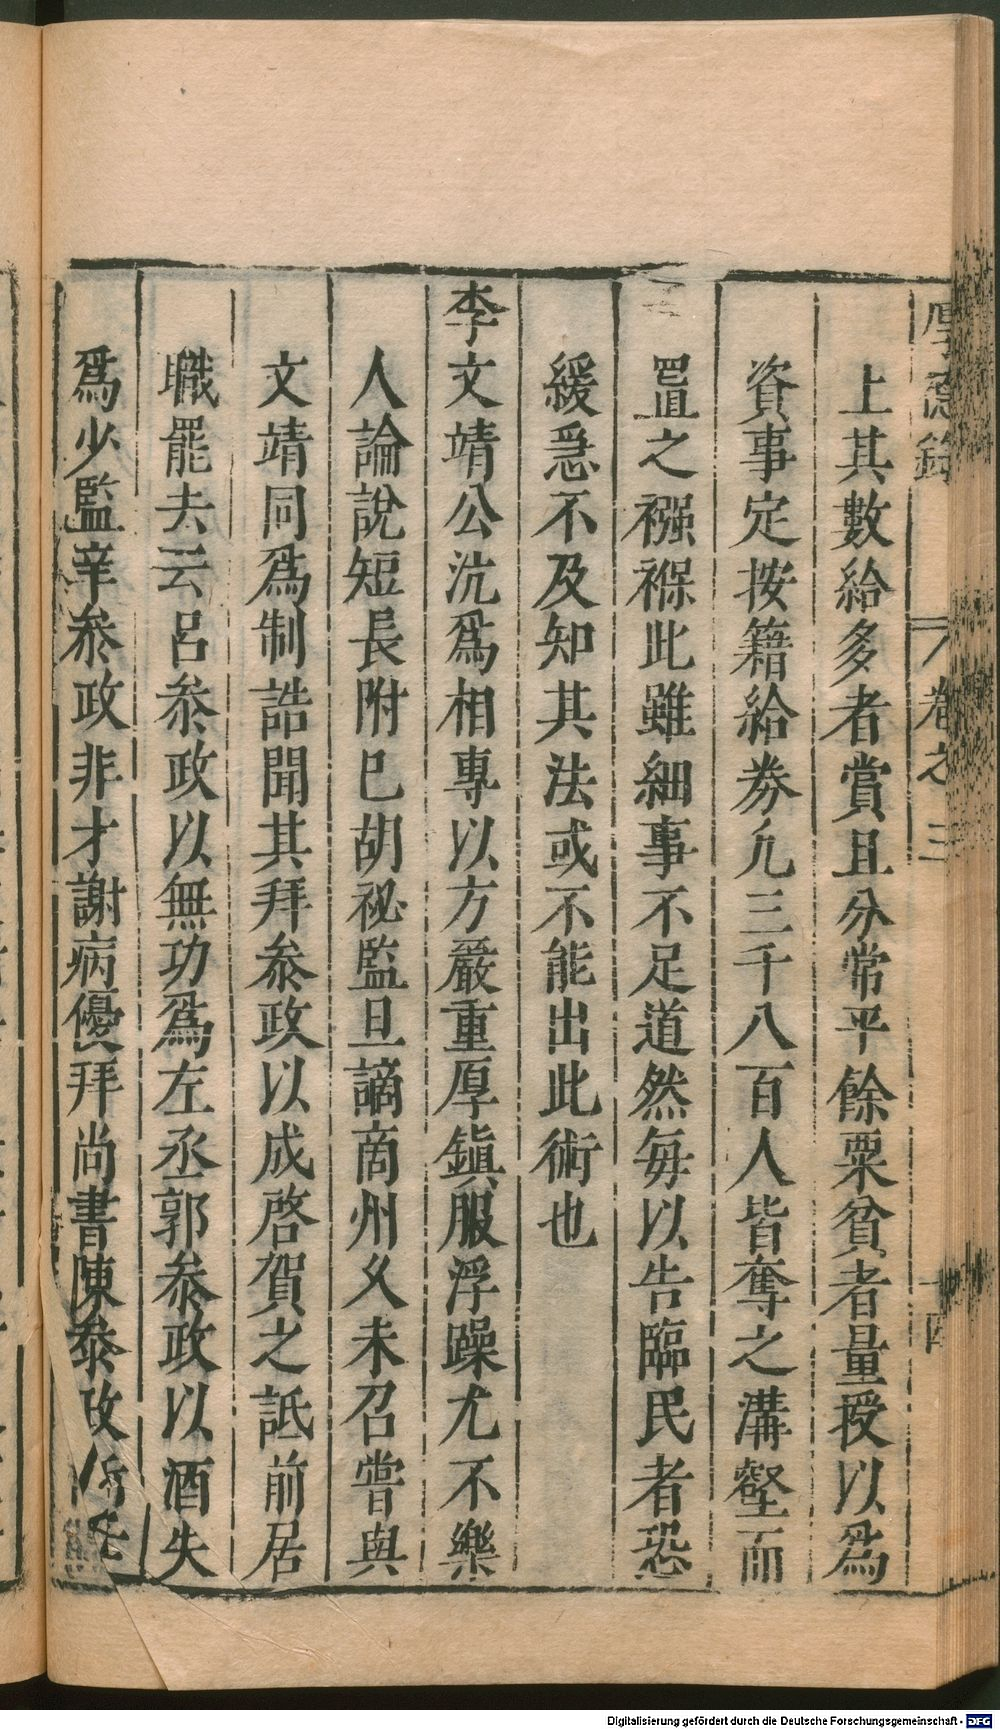 厚德錄 卷之三 十四
上其數給多者賞且分常平餘粟貧者量授以爲
資事定按籍給劵凢三千八百人皆奪之溝壑而
置之襁褓此雖細事不足道然每以告臨民者恐
緩急不及知其法或不能出此術也
李文靖公沆爲相專以方嚴重厚鎮服浮躁尤不樂
人論說短長附巳胡祕監旦謫商州乆未召嘗與
文靖同爲制誥聞其拜叅政以成啓賀之詆前居
職罷去云呂叅政以無功爲左丞郭叅政以酒失
爲少監辛叅政非才謝病優拜尚書陳叅政
Digitalisierung gefördert durch die Deutsche Forschungsgemeinschaft - DFG